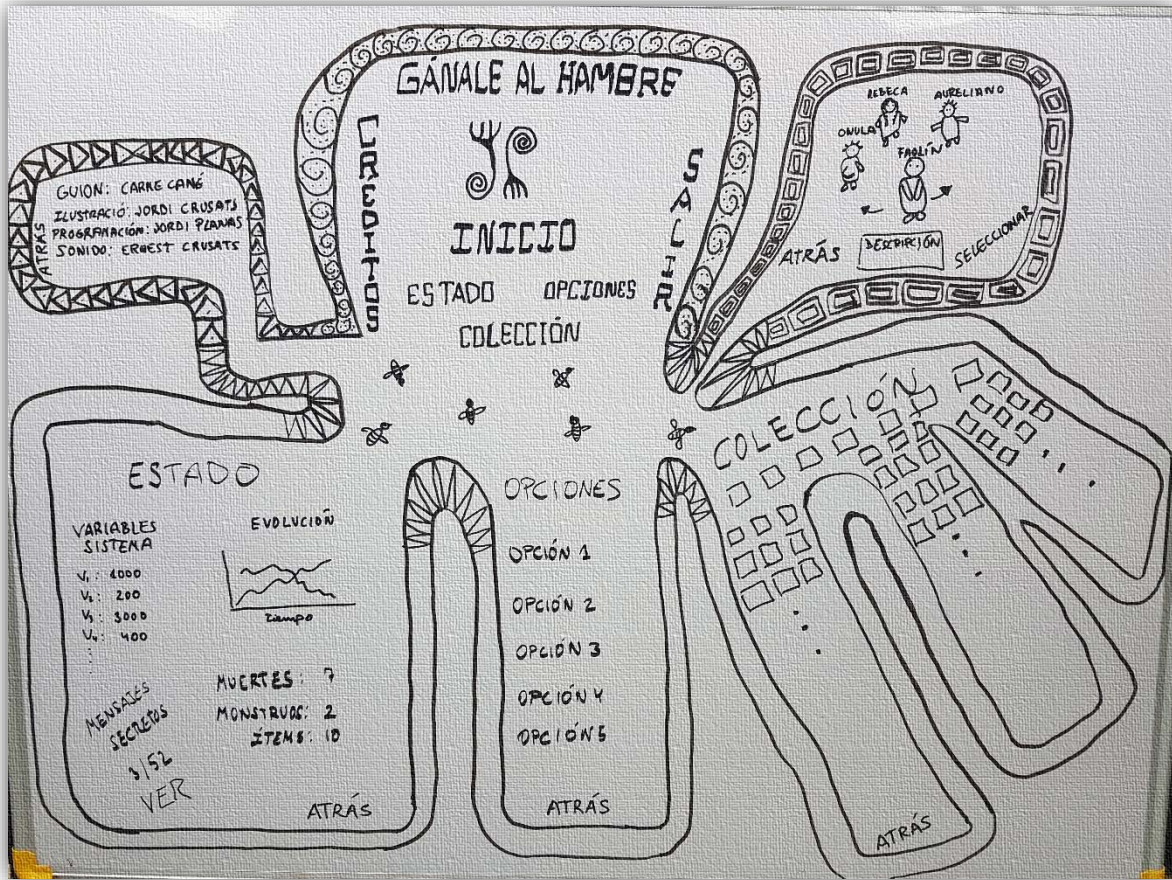 GÁNALE AL HAMBRE
CREDITOS
SALIR
INICIO
ESTADO OPCIONES
COLECCIÓN
GUION: CARME CANÉ
ILUSTRACIÓ: JORDI CRUSATS
PROGRAMACIÓN: JORDI PLANAS
SONIDO: ERNEST CRUSATS
ATRÁS
REBECA AURELIANO
ONULA
FAOLÍN
ATRÁS
DESCRIPCIÓN
SELECCIONAR
ESTADO
VARIABLES
SISTEMA
V₁: 1000
V₂: 200
V₃: 3000
V₄: 400
EVOLUCIÓN
Tiempo
MUERTES: 7
MONSTRUOS: 2
ÍTEMS: 10
MENSAJES
SECRETOS
3/52
VER
ATRÁS
OPCIONES
OPCIÓN 1
OPCIÓN 2
OPCIÓN 3
OPCIÓN 4
OPCIÓN 5
ATRÁS
COLECCIÓN
ATRÁS